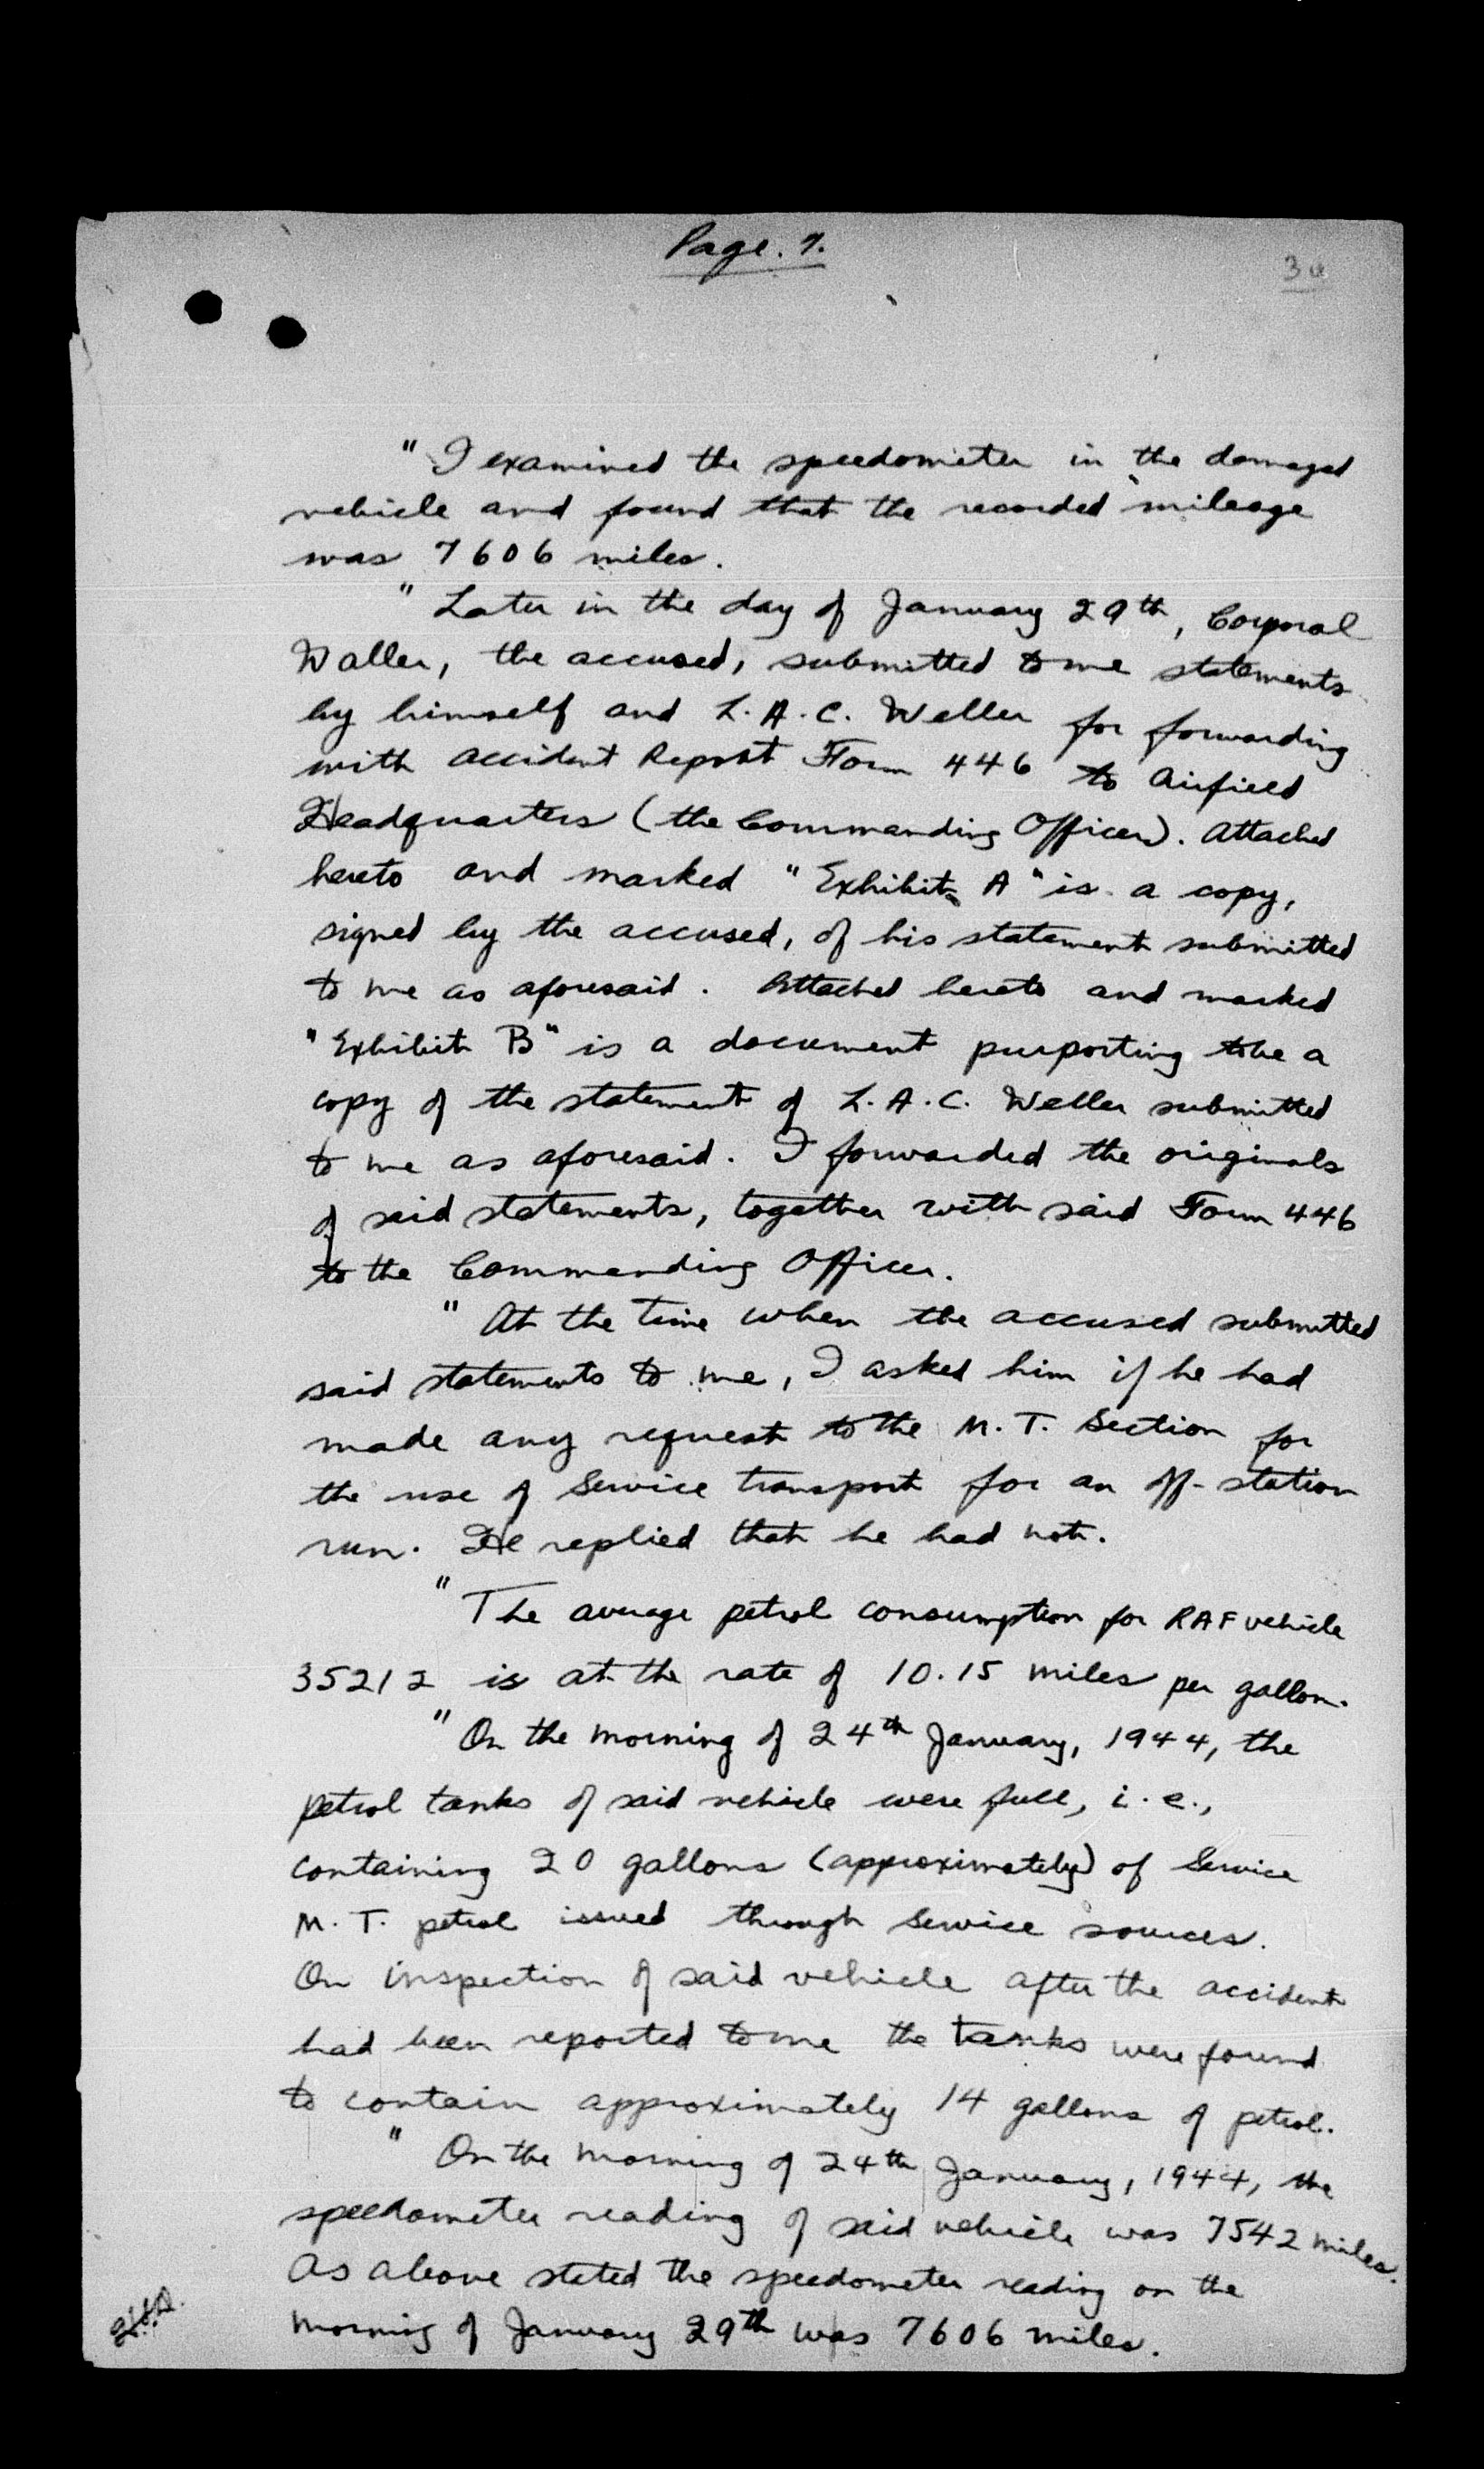 Page. 7.
" I examined the speedometer in the damaged
vehicle and found that the recorded mileage
was 7606 miles.
" Later in the day of January 29th, Corporal
Waller, the accused, submitted to me statements
by himself and L.A.C. Weller for forwarding
with accident Report Form 446 to Airfield
Headquarters (the Commanding Officer). Attached
hereto and marked "Exhibit A" is a copy,
signed by the accused, of his statement submitted
to me as aforesaid. Attached hereto and marked
"Exhibit B" is a document purporting to be a
copy of the statement of L.A.C. Weller submitted
to me as aforesaid. I forwarded the originals
of said statements, together with said Form 446
to the Commanding Officer.
" At the time when the accused submitted
said statements to me, I asked him if he had
made any request to the M.T. Section for
the use of Service transport for an off-station
run. He replied that he had not.
" The average petrol consumption for RAF vehicle
35212 is at the rate of 10.15 miles per gallon.
" On the morning of 24th January, 1944, the
petrol tanks of said vehicle were full, i.e.,
containing 20 gallons (approximately) of Service
M.T. petrol issued through Service sources.
On inspection of said vehicle after the accident
had been reported to me the tanks were found
to contain approximately 14 gallons of petrol.
" On the morning of 24th January, 1944, the
speedometer reading of said vehicle was 7542 miles.
As above stated the speedometer reading on the
morning of January 29th was 7606 miles.